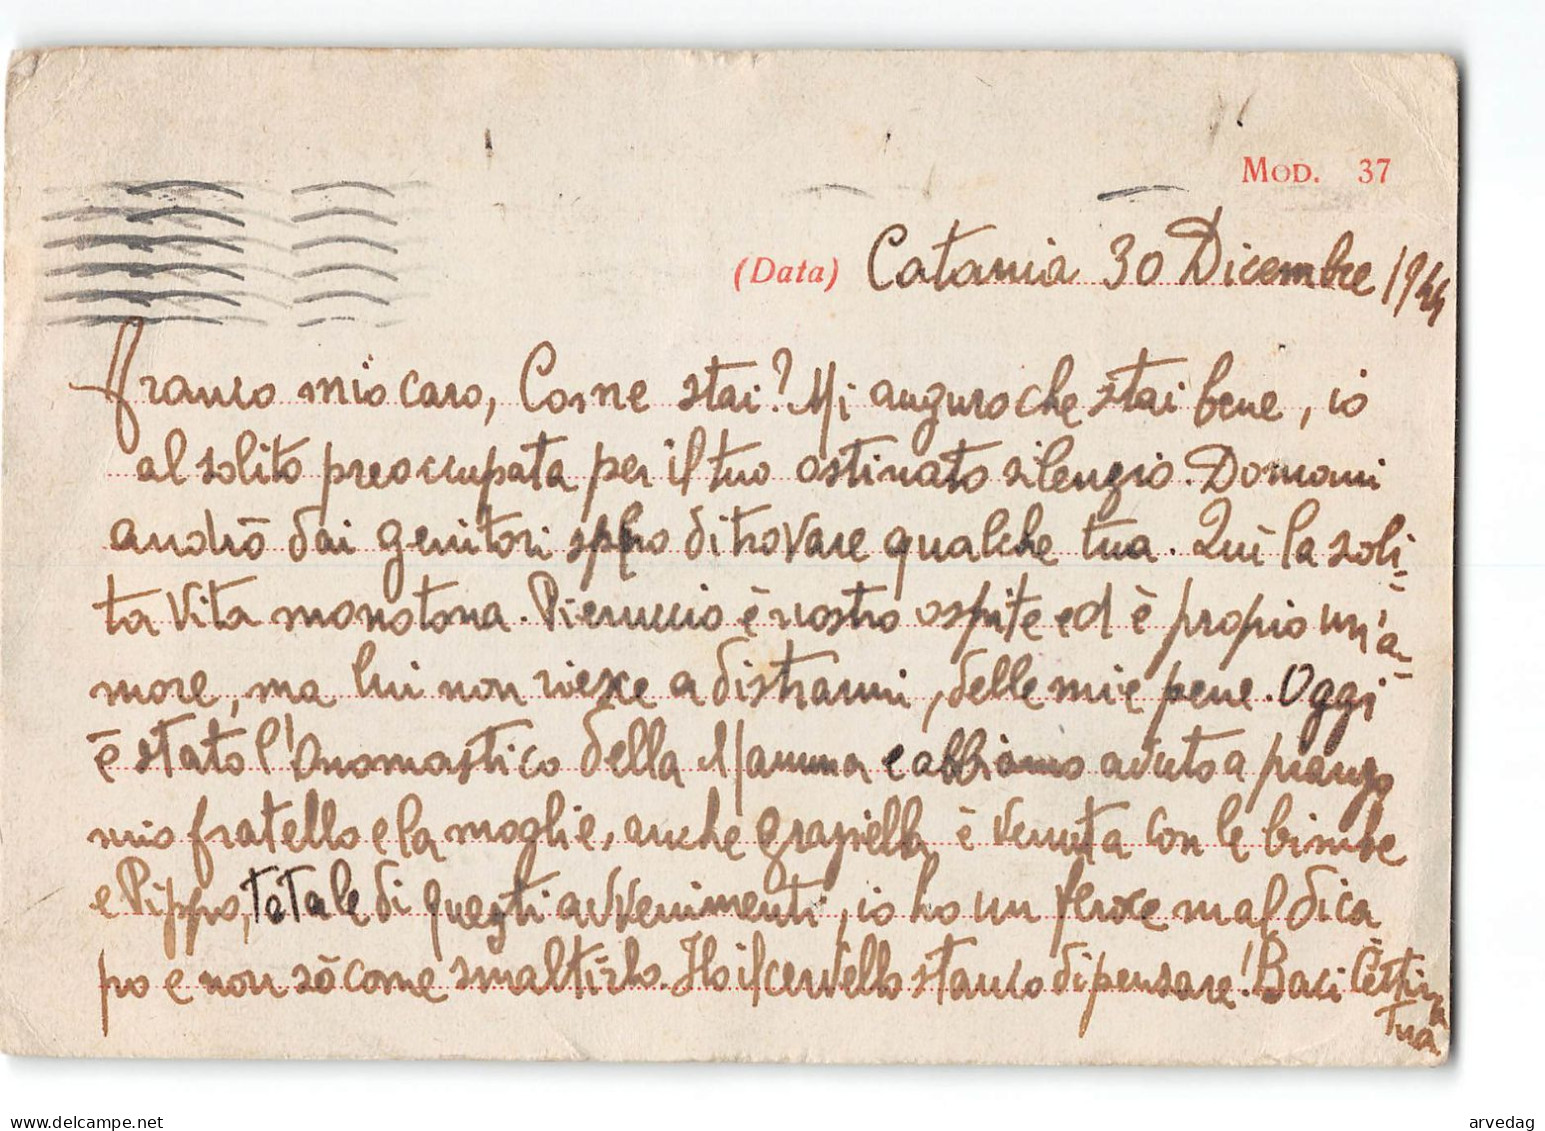 MOD. 37
(Data) Catania 30 Dicembre 1944
Franco mio caro, Come stai? Mi auguro che stai bene, io
al solito preoccupata per il tuo ostinato silenzio. Domani
andrò dai genitori spero di trovare qualche tua. Quì la soli-
ta vita monotona. Pieruccio è nostro ospite ed è proprio un'a-
more, ma lui non riesce a distrarmi, delle mie pene. Oggi
è stato l'Onomastico della Mamma e abbiamo avuto a pranzo
mio fratello e la moglie, anche Graziella è venuta con le bimbe
e Pippo, totale di questi avvenimenti, io ho un feroce mal di ca
po e non sò come smaltirlo. Ho il cervello stanco di pensare! Baci Cettina
tua
delcampe.net
arvedag